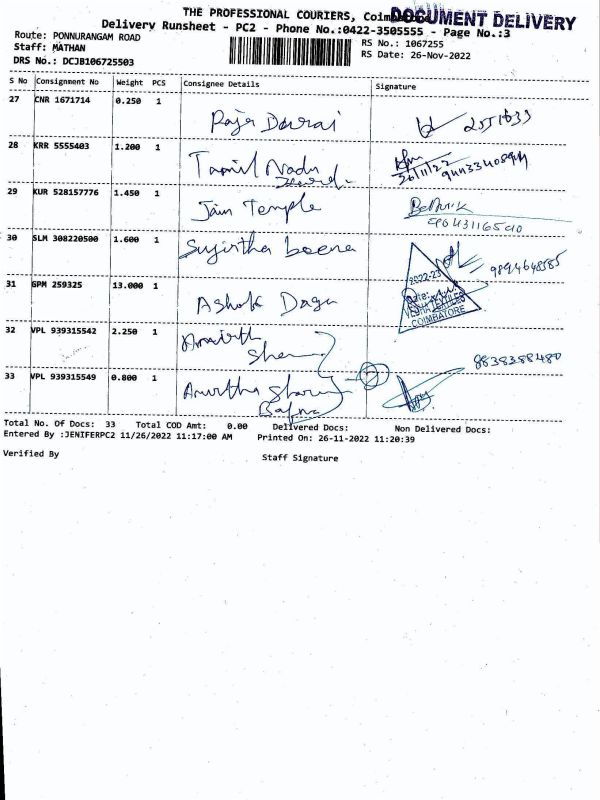 THE PROFESSIONAL COURIERS, Coimbatore
DOCUMENT DELIVERY
Delivery Runsheet - PC2 - Phone No.:0422-3505555 - Page No.:3
Route: PONNURANGAM ROAD
RS No.: 1067255
Staff: MATHAN
RS Date: 26-Nov-2022
DRS No.: DCJB106725503
S No Consignment No Weight PCS Consignee Details Signature
27 CNR 1671714 0.250 1
Raja Dorai
28 KRR 5555403 1.200 1
Tamil Nadu
26/11/22
29 KUR 528157776 1.450 1
Jain Temple
30 SLM 308220500 1.600 1
Sujirtha beena
9894648585
2022-23
31 GPM 259325 13.000 1
Ashok Daga
COIMBATORE
32 VPL 939315542 2.250 1
8838388480
33 VPL 939315549 0.800 1
2
Total No. Of Docs: 33 Total COD Amt: 0.00 Delivered Docs: Non Delivered Docs:
Entered By :JENIFERPC2 11/26/2022 11:17:00 AM Printed On: 26-11-2022 11:20:39
Verified By Staff Signature